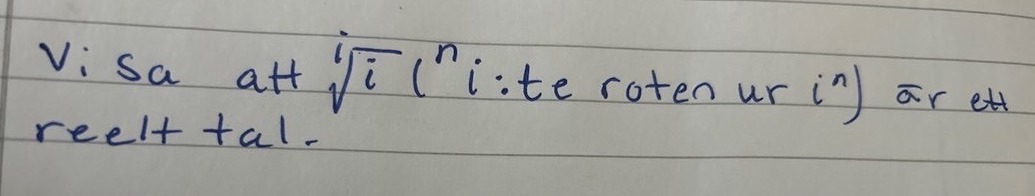 Visa att ⁱ√i ("i:te roten ur i") är ett
reellt tal.